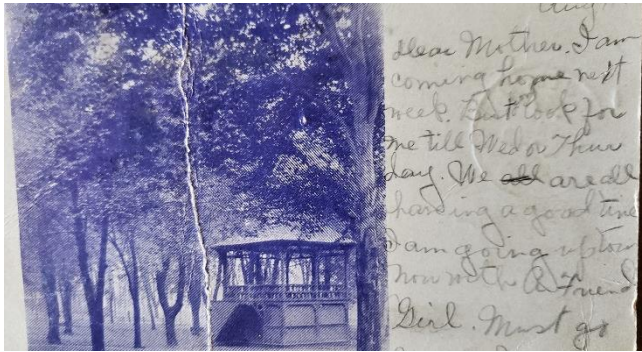 Aug
Dear Mother. I am
coming home next
week. Dont look for
me till Wed or Thur
day. We all are all
having a good time
I am going uptown
now with a Friend
Girl. Must go